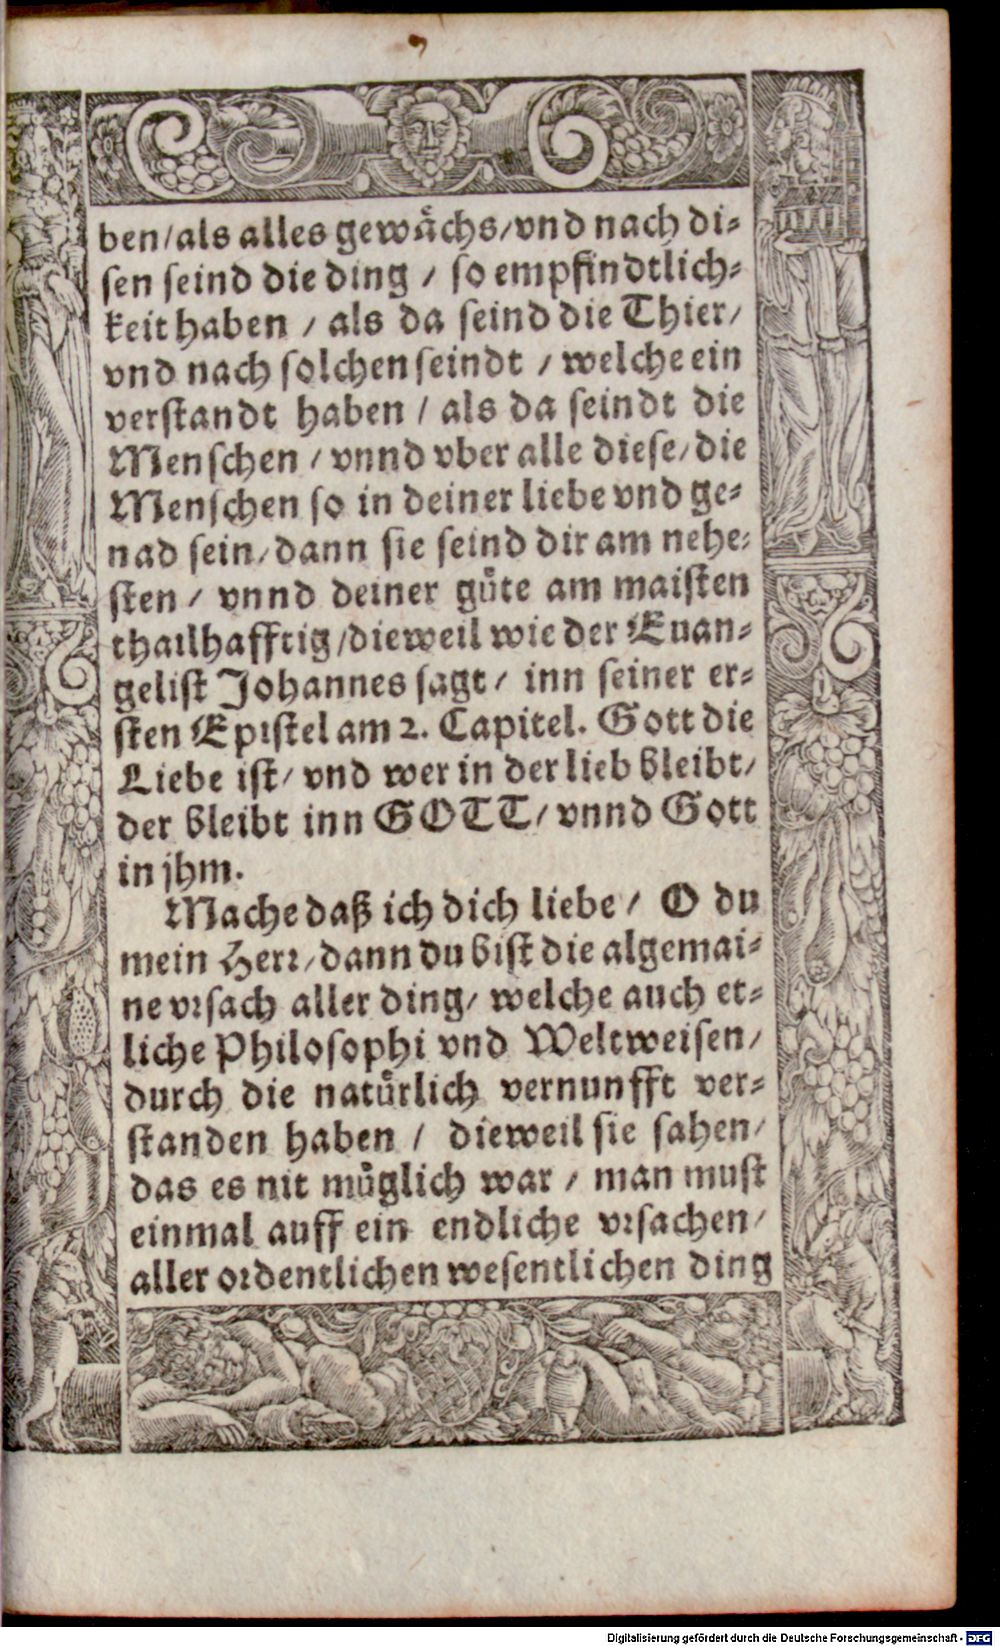 ben/als alles gewaͤchs/vnd nach di⸗
sen seind die ding / so empfindtlich⸗
keit haben / als da seind die Thier/
vnd nach solchen seindt / welche ein
verstandt haben / als da seindt die
Menschen / vnnd vber alle diese/die
Menschen so in deiner liebe vnd ge⸗
nad sein/dann sie seind dir am nehe⸗
sten / vnnd deiner guͤte am maisten
thailhafftig/dieweil wie der Euan⸗
gelist Johannes sagt/ inn seiner er⸗
sten Epistel am 2. Capitel. Gott die
Liebe ist/ vnd wer in der lieb bleibt/
der bleibt inn GOTT/ vnnd Gott
in jhm.
Mache daß ich dich liebe/ O du
mein Herr/dann du bist die algemai⸗
ne vrsach aller ding/ welche auch et⸗
liche Philosophi vnd Weltweisen/
durch die natuͤrlich vernunfft ver⸗
standen haben / dieweil sie sahen/
das es nit muͤglich war / man must
einmal auff ein endliche vrsachen/
aller ordentlichen wesentlichen ding
Digitalisierung gefördert durch die Deutsche Forschungsgemeinschaft - DFG